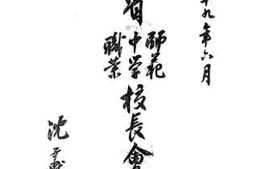 十九年六月
省
師範
中学
職業
校長會
沈